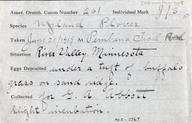 Amer. Ornith. Union Number 261 Individual Mark 9/3
Species Upland Plover
Taken June 21, 1915 Pembina Trail Road
Situation River Valley, Minnesota
Eggs Deposited under a tuft of buffalo
grass on sand ridge.
Collected for G. A. Abbott
Slight incubation.